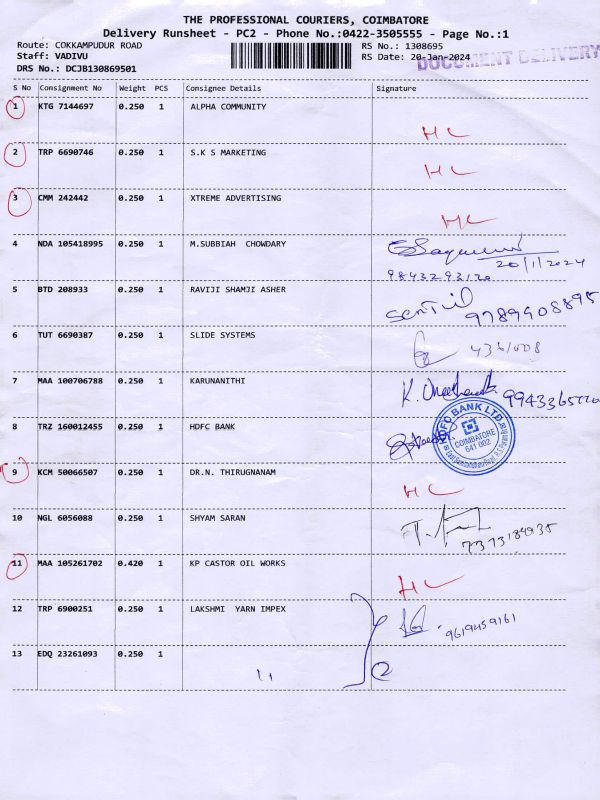 THE PROFESSIONAL COURIERS, COIMBATORE
Delivery Runsheet - PC2 - Phone No.:0422-3505555 - Page No.:1
Route: COKKAMPUDUR ROAD RS No.: 1308695
Staff: VADIVU RS Date: 20-Jan-2024
DOCUMENT DELIVERY
DRS No.: DCJB130869501
S No Consignment No Weight PCS Consignee Details Signature
1 KTG 7144697 0.250 1 ALPHA COMMUNITY
HC
2 TRP 6690746 0.250 1 S.K S MARKETING
HC
3 CMM 242442 0.250 1 XTREME ADVERTISING
HC
4 NDA 105418995 0.250 1 M.SUBBIAH CHOWDARY
20/1/2024
9843293120
5 BTD 208933 0.250 1 RAVIJI SHAMJI ASHER
9789908895
6 TUT 6690387 0.250 1 SLIDE SYSTEMS
7 MAA 100706788 0.250 1 KARUNANITHI
K.
8 TRZ 160012455 0.250 1 HDFC BANK
HDFC BANK LTD.
COIMBATORE
641 002
9 KCM 50066507 0.250 1 DR.N. THIRUGNANAM
HC
10 NGL 6056088 0.250 1 SHYAM SARAN
7373184935
11 MAA 105261702 0.420 1 KP CASTOR OIL WORKS
HC
12 TRP 6900251 0.250 1 LAKSHMI YARN IMPEX
9619459161
13 EDQ 23261093 0.250 1